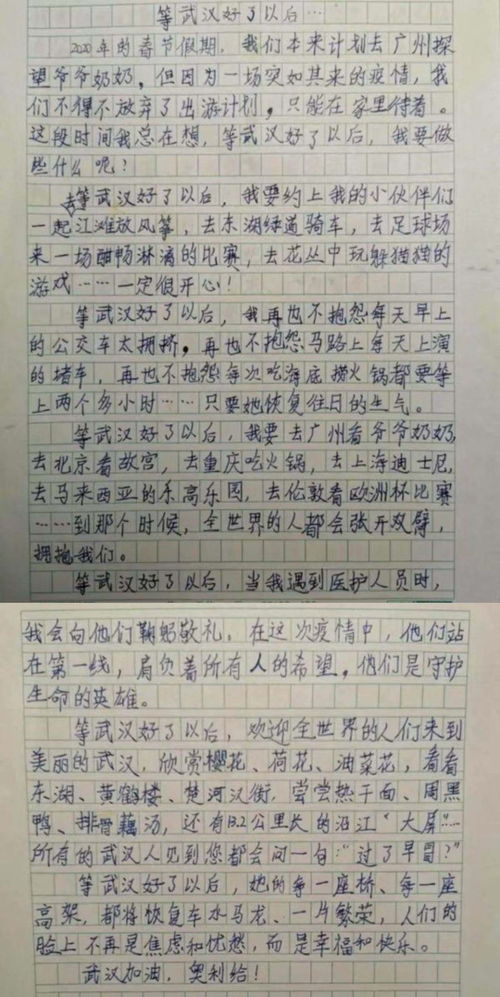 等武汉好了以后…
2020年的春节假期，我们本来计划去广州探
望爷爷奶奶，但因为一场突如其来的疫情，我
们不得不放弃了出游计划，只能在家里待着。
这段时间我总在想，等武汉好了以后，我要做
些什么呢？
等武汉好了以后，我要约上我的小伙伴们
一起去江滩放风筝，去东湖绿道骑车，去足球场
来一场酣畅淋漓的比赛，去花丛中玩躲猫猫的
游戏……一定很开心！
等武汉好了以后，我再也不抱怨每天早上
的公交车太拥挤，再也不抱怨马路上每天上演
的堵车，再也不抱怨每次吃海底捞火锅都要等
上两个多小时……只要她恢复往日的生气。
等武汉好了以后，我要去广州看爷爷奶奶，
去北京看故宫，去重庆吃火锅，去上海迪士尼，
去马来西亚的乐高乐园，去伦敦看欧洲杯比赛
……到那个时候，全世界的人都会张开双臂，
拥抱我们。
等武汉好了以后，当我遇到医护人员时，
我会向他们鞠躬敬礼，在这次疫情中，他们站
在第一线，肩负着所有人的希望。他们是守护
生命的英雄。
等武汉好了以后，欢迎全世界的人们来到
美丽的武汉，欣赏樱花、荷花、油菜花，看看
东湖、黄鹤楼、楚河汉街，尝尝热干面、周黑
鸭、排骨藕汤，还有13.2公里长的沿江“大屏”……
所有的武汉人见到您都会问一句：“过了早冒？”
等武汉好了以后，她的每一座桥、每一座
高架，都将恢复车水马龙、一片繁荣，人们的
脸上不再是焦虑和忧愁，而是幸福和快乐。
武汉加油，奥利给！